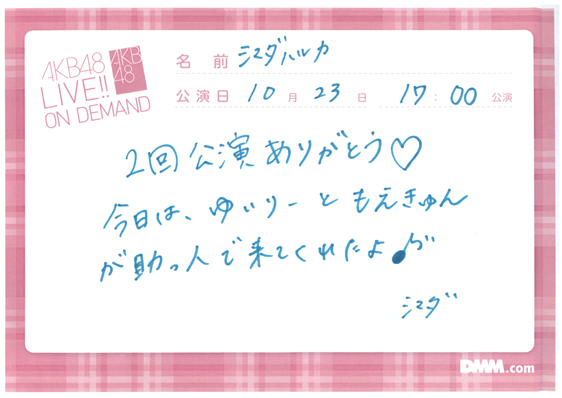 AKB48
LIVE!!
ON DEMAND
AKB
48
名前 シマダハルカ
公演日 10月23日 17:00 公演
2回公演ありがとう♡
今日は、ゆいりーともえきゅん
が助っ人で来てくれたよ♪
シマダ
DMM.com